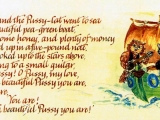 and the Pussy-Cat went to sea
beautiful pea-green boat,
some honey, and plenty of money
up in a five-pound note.
looked up to the stars above
to a small guitar,
Pussy! O Pussy, my love,
a beautiful Pussy you are,
You are!
beautiful Pussy you are!